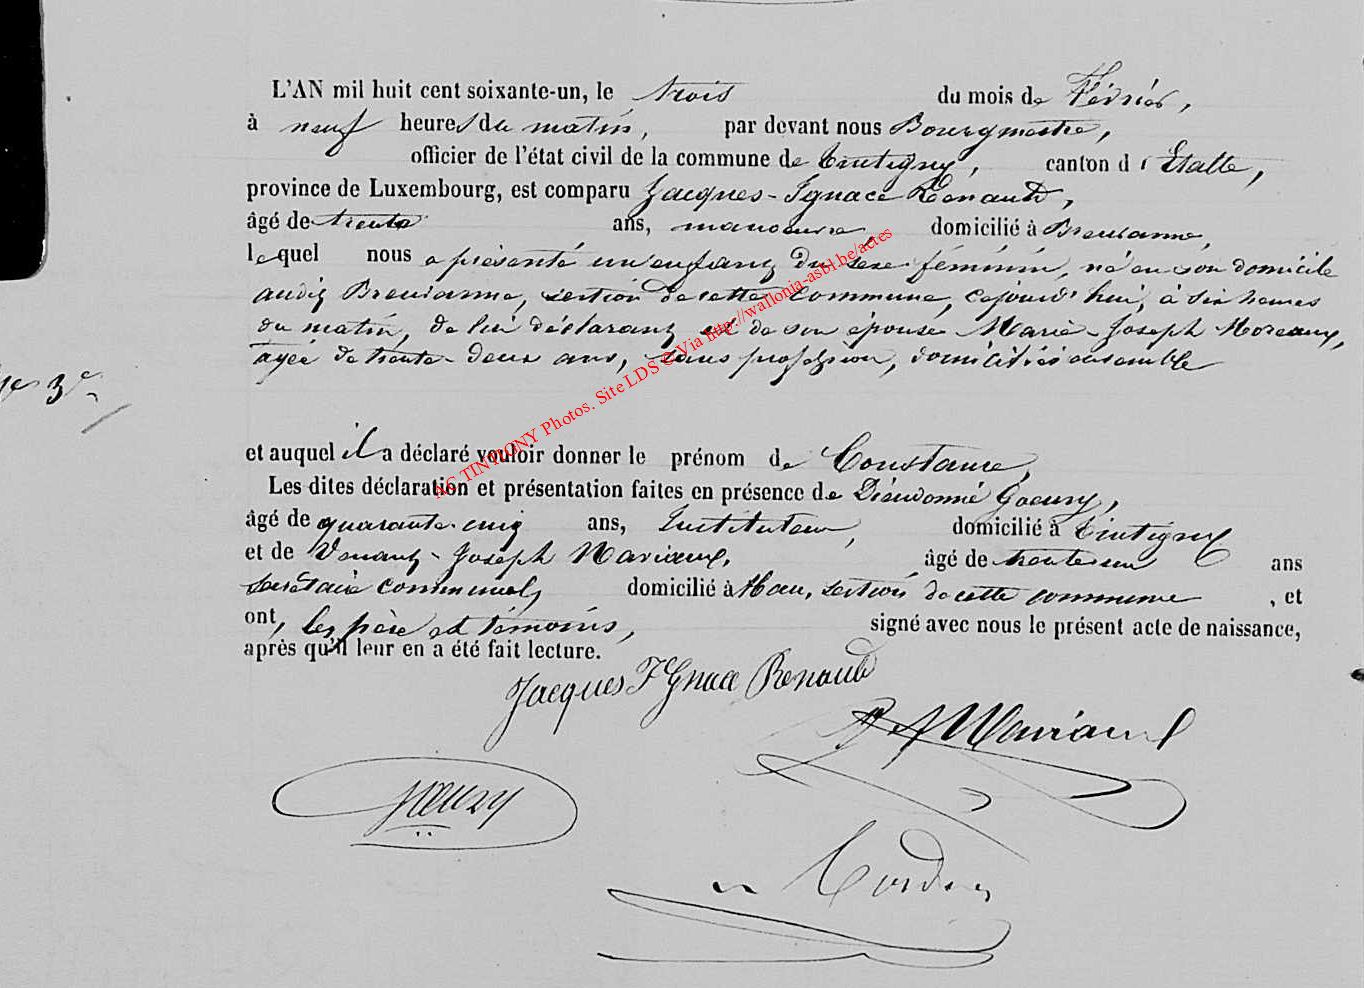 L'AN mil huit cent soixante-un, le trois du mois de Février,
à neuf heures du matin, par devant nous Bourgmestre,
officier de l'état civil de la commune de Tintigny, canton d'Etalle,
province de Luxembourg, est comparu Jacques-Ignace Renauld,
âgé de trente ans, manoeuvre, domicilié à Breuvanne,
lequel nous a présenté un enfant du sexe féminin, né en son domicile
audit Breuvanne, section de cette commune, cejourd'hui, à six heures
du matin, de lui déclarant et de son épouse Marie-Joseph Moreaux,
agée de trente-deux ans, sans profession, domiciliés ensemble
3e
et auquel il a déclaré vouloir donner le prénom de Constance,
Les dites déclaration et présentation faites en présence de Dieudonné Goeury,
âgé de quarante-cinq ans, Instituteur, domicilié à Tintigny
et de Venant-Joseph Mariaux, âgé de trente-un ans
secrétaire communal, domicilié à Han, section de cette commune, et
ont, les père et témoins, signé avec nous le présent acte de naissance,
après qu'il leur en a été fait lecture.
Jacques IGnace Renauld
Mariaux
Goeury
AC TINTIGNY Photos. Site LDS © Via http://wallonia-asbl.be/actes